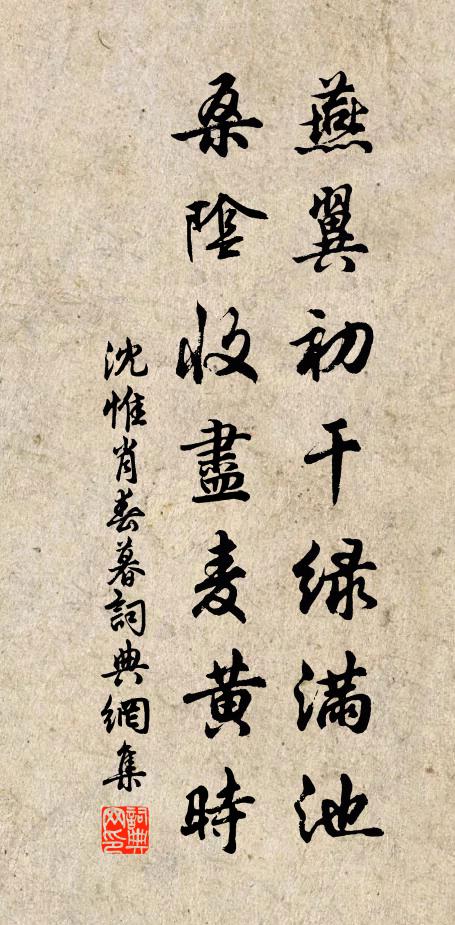 燕翼初干绿满池
桑陰收盡麦黄時
沈惟肖春暮詞典網集
詞典网印